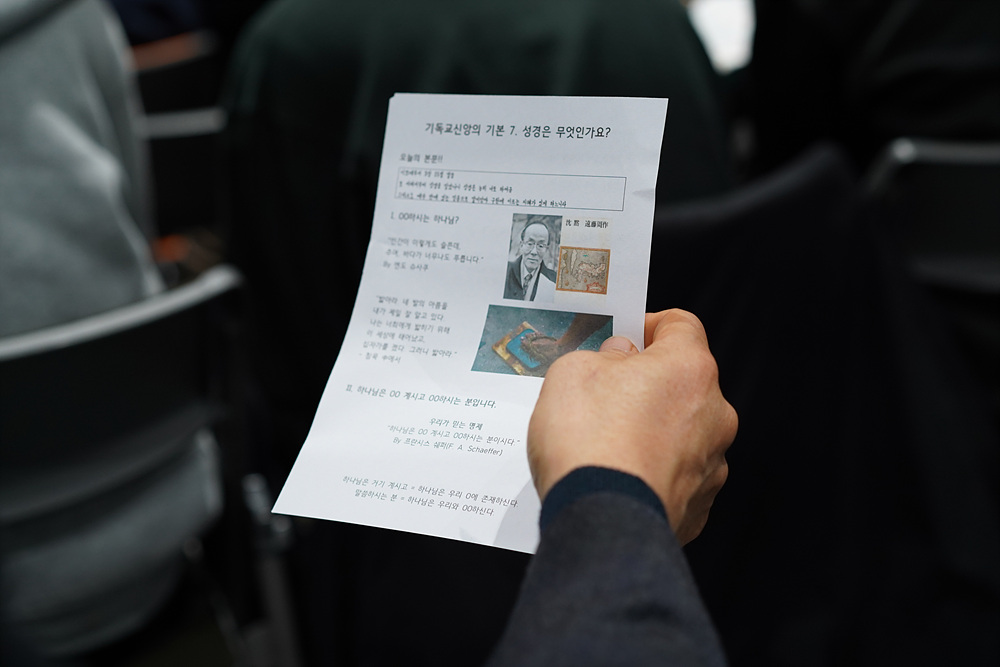 기독교신앙의 기본 7. 성경은 무엇인가요?
오늘의 본문!!
I. OO하시는 하나님?
"인간이 이렇게도 슬픈데,
주여, 바다가 너무나도 푸릅니다."
By 엔도 슈사쿠
沈黙 遠藤周作
"밟아라, 네 발의 아픔을
내가 제일 잘 알고 있다.
나는 너희에게 밟히기 위해
이 세상에 태어났고,
십자가를 졌다. 그러니 밟아라."
- 침묵 中에서
II. 하나님은 OO 계시고 OO하시는 분입니다.
우리가 믿는 명제
"하나님은 OO 계시고 OO하시는 분이시다."
By 프란시스 쉐퍼(F. A. Schaeffer)
하나님은 거기 계시고 = 하나님은 우리 O에 존재하신다
말씀하시는 분 = 하나님은 우리와 OO하신다